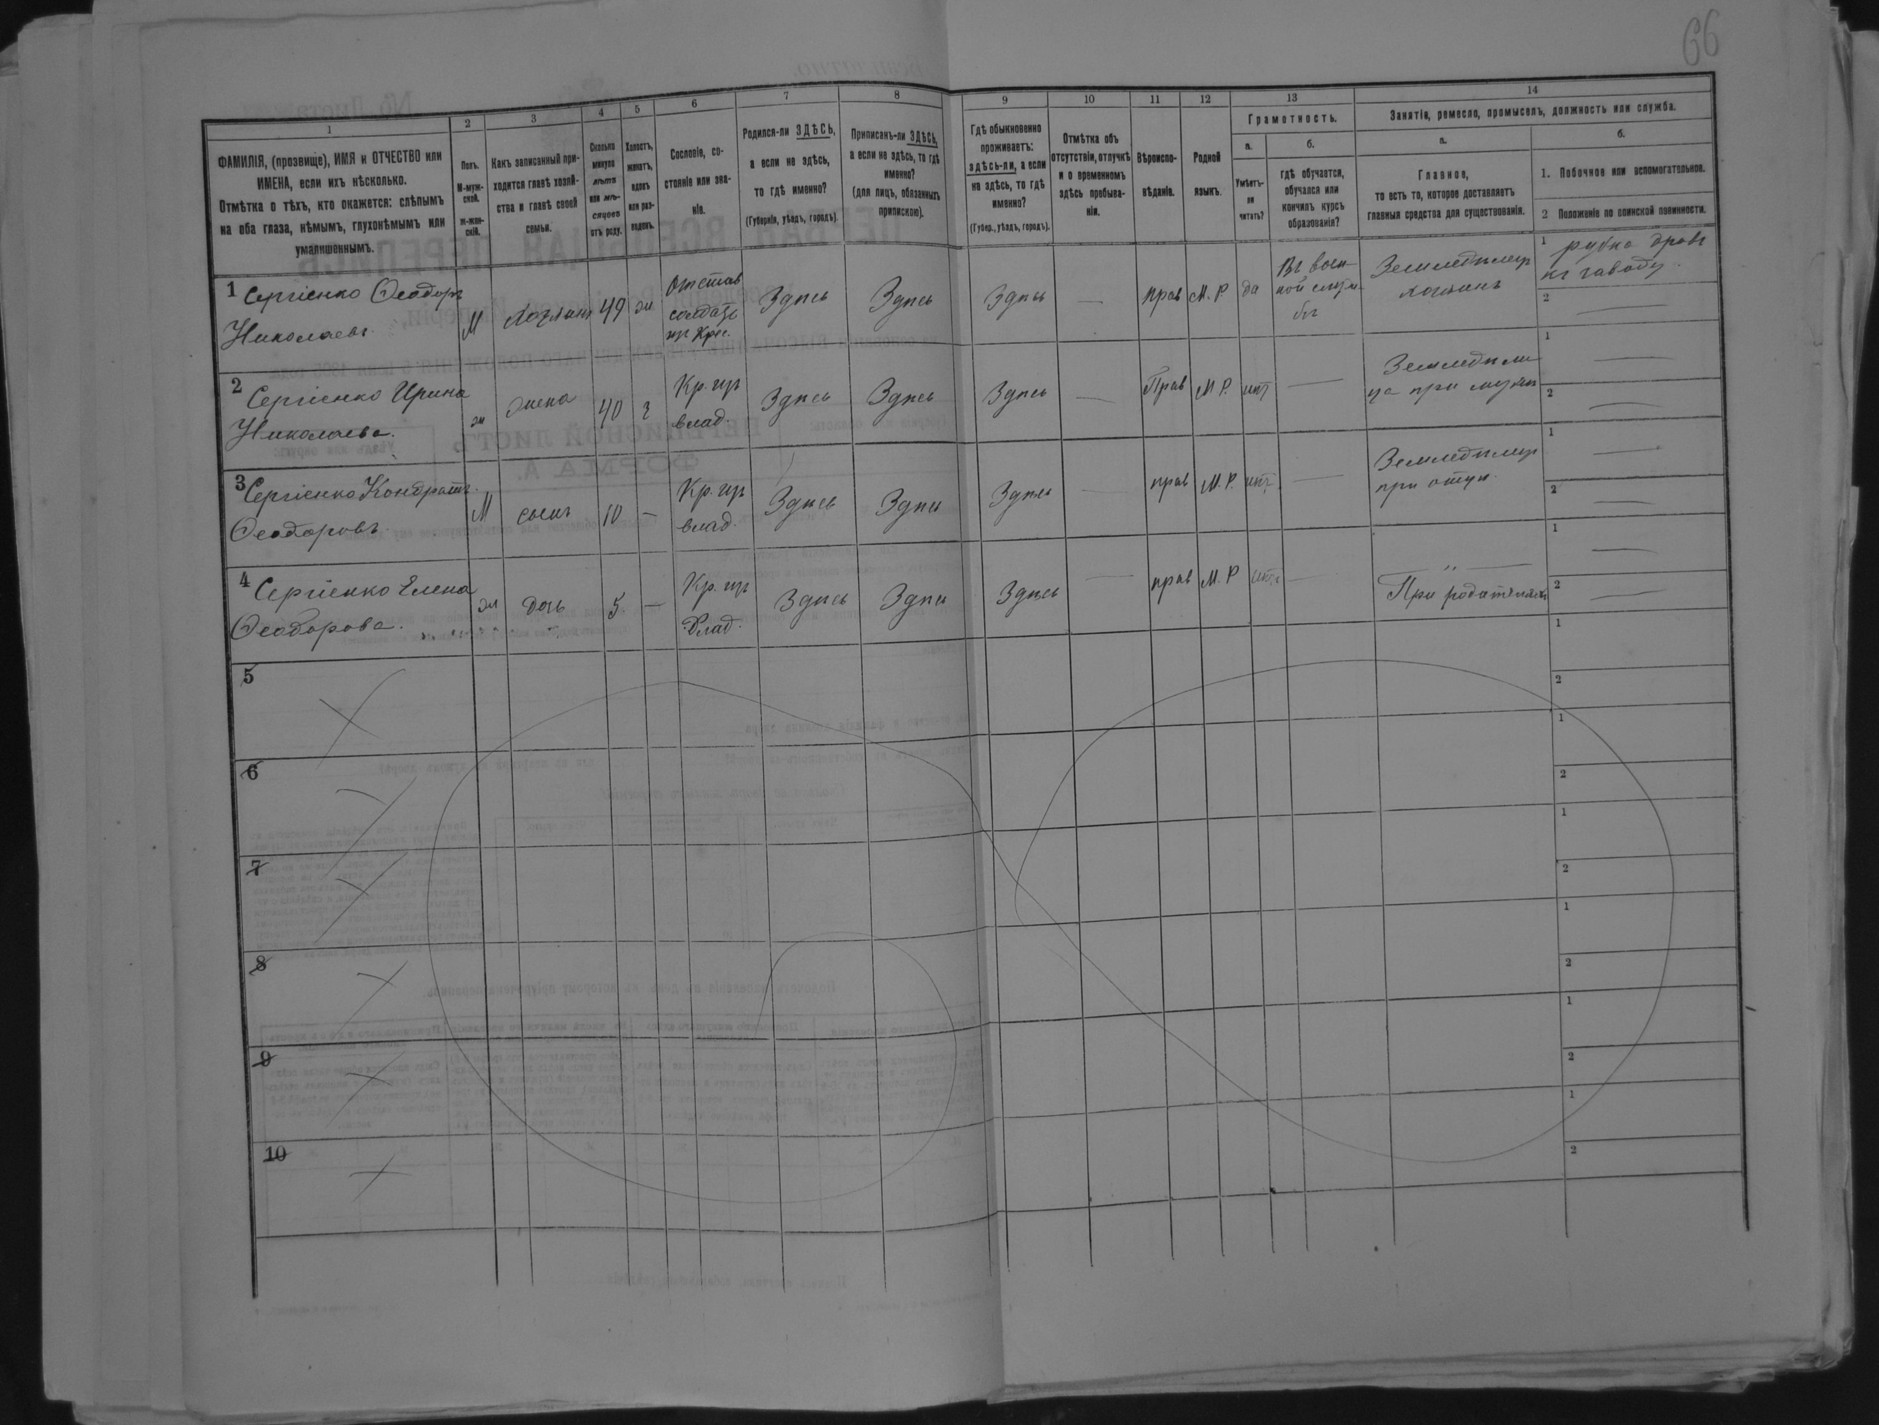 66
1
2
3
4
5
6
7
8
9
10
11
12
13
14
ФАМИЛІЯ, (прозвище), ИМЯ и ОТЧЕСТВО или
ИМЕНА, если ихъ нѣсколько.
Отмѣтка о тѣхъ, кто окажется: слѣпымъ
на оба глаза, нѣмымъ, глухонѣмымъ или
умалишеннымъ.
Полъ.
М-муж-
ской.
ж-жен-
скій.
Какъ записанный при-
ходится главѣ хозяй-
ства и главѣ своей
семьи.
Сколько
минуло
лѣтъ
или мѣ-
сяцевъ
отъ роду.
Холостъ,
женатъ,
вдовъ
или раз-
веденъ.
Сословіе, со-
стояніе или зва-
ніе.
Родился-ли ЗДѢСЬ,
а если не здѣсь,
то гдѣ именно?
(Губернія, уѣздъ, городъ).
Приписанъ-ли ЗДѢСЬ,
а если не здѣсь, то гдѣ
именно?
(для лицъ, обязанныхъ
припискою).
Гдѣ обыкновенно
проживаетъ:
здѣсь-ли, а если
не здѣсь, то гдѣ
именно?
(Губер., уѣздъ, городъ).
Отмѣтка объ
отсутствіи, отлучкѣ
и о временномъ
здѣсь пребыва-
ніи.
Вѣроиспо-
вѣданіе.
Родной
языкъ.
Грамотность.
а.
б.
Умѣетъ-
ли
читать?
гдѣ обучается,
обучался или
кончилъ курсъ
образованія?
Занятія, ремесло, промыселъ, должность или служба.
а.
б.
Главное,
то есть то, которое доставляетъ
главныя средства для существованія.
1. Побочное или вспомогательное.
2 Положеніе по воинской повинности.
1 Сергіенко Ѳеодоръ
Николаевъ.
М
хозяинъ
49
ж
Отстав
солдатъ
изъ Крес.
Здѣсь
Здѣсь
Здѣсь
—
прав
М. Р.
да
Въ воен
ной служ-
бѣ
Земледѣлецъ
хозяинъ
1 рубка дровъ
къ заводу.
2 —
2 Сергіенко Ирина
Николаева.
ж
жена
40
з
Кр. изъ
влад.
Здѣсь
Здѣсь
Здѣсь
—
Прав
М. Р.
нѣт
—
Земледѣли
ца при мужѣ
1 —
2 —
3 Сергіенко Кондратъ
Ѳеодоровъ.
М
сынъ
10
—
Кр. изъ
влад.
Здѣсь
Здѣсь
Здѣсь
—
прав
М. Р.
нѣт.
—
Земледѣлецъ
при отцѣ.
1 —
2 —
4 Сергіенко Елена
Ѳеодорова.
ж
дочь
5
—
Кр. изъ
Влад.
Здѣсь
Здѣсь
Здѣсь
—
прав
М. Р
нѣт.
—
— " —
При родителяхъ
1 —
2 —
5
1
2
6
1
2
7
1
2
8
1
2
9
1
2
10
1
2